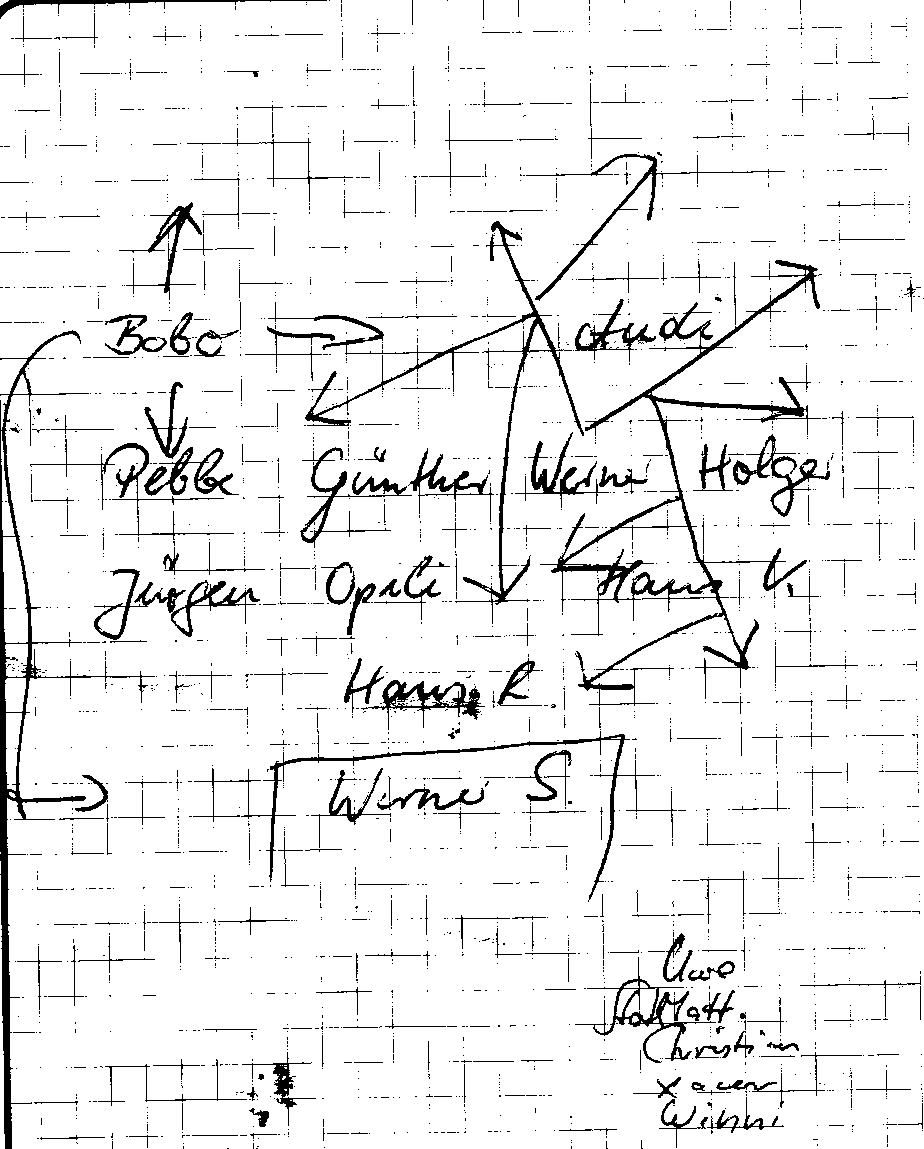 Bobo Andi
Pebbe Günther Werner Holger
Jürgen Opili Hans V.
Hans R
Werner S.
Uwe
Matt.
Christian
Xaver
Winni